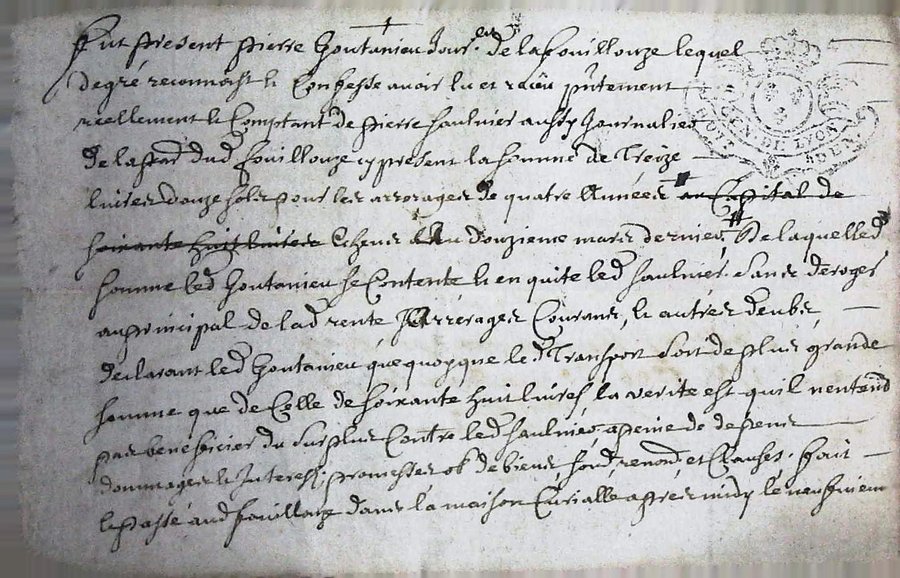 Fut present pierre Goutanieu Jour.er de la fouillouze lequel
de gré reconnoist & Confesse avoir hu et reçeu pñtement
reellement & Comptant de pierre faulnier aussy Journalier
de la par dud fouillouze cy present la somme de Treize
livres douze sols pour les arrerages de quatre Années au Capital de
soixante huit livres Echeus au douzieme mars dernier, de laquelled
somme led Goutanieu se Contente & en quite led faulnier, sans deroger
au principal de lad rente Arrerages Courans, & autres deubs,
declarant led Goutanieu que quoyque led Transport soit de plus grande
somme que de Celle de soixante huit livres la verite est quil n'entend
pas beneficier du surplus Contre led faulnier, a peine de depens
dommages & Interests, promesses ob. de biens soub. renon. et Clauses. fait
& passé aud fouillouze dans la maison Curialle apres midy le neufvieme
GEN. DE LYON